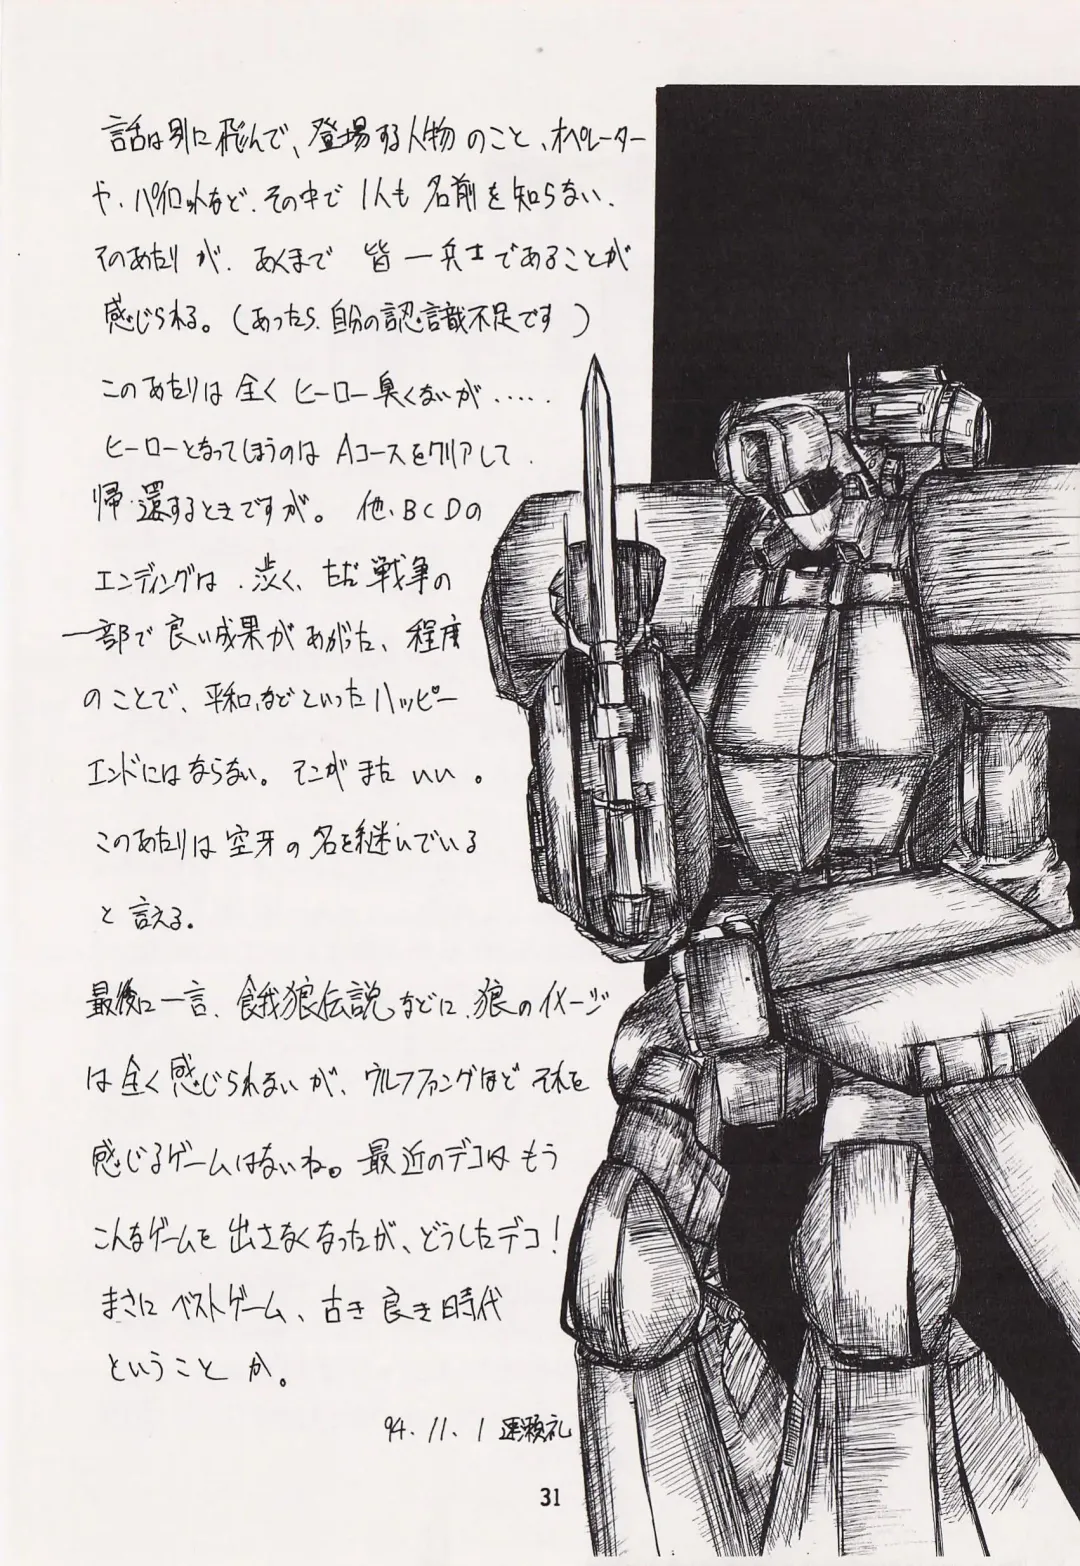 話は別に飛んで、登場する人物のこと、オペレーター
や、パイロットなど、その中で1人も名前を知らない、
そのあたりが、あくまで 皆一兵士であることが
感じられる。（あったら、自分の認識不足です）
このあたりは全くヒーロー臭くないが.....
ヒーローとなってしまうのはAコースをクリアして、
帰還するときですが。他、BCDの
エンディングは、渋く、ただ戦争の
一部で良い成果があがった、程度
のことで、平和、などといったハッピー
エンドにはならない。そこがまたいい。
このあたりは空牙の名を継いでいる
と言える。
最後に一言、餓狼伝説などに、狼のイメージ
は全く感じられないが、ウルフファングほどそれを
感じるゲームはないね。最近のデコはもう
こんなゲームを出さなくなったが、どうしたデコ!
まさにベストゲーム、古き良き時代
ということか。
94.11.1
31